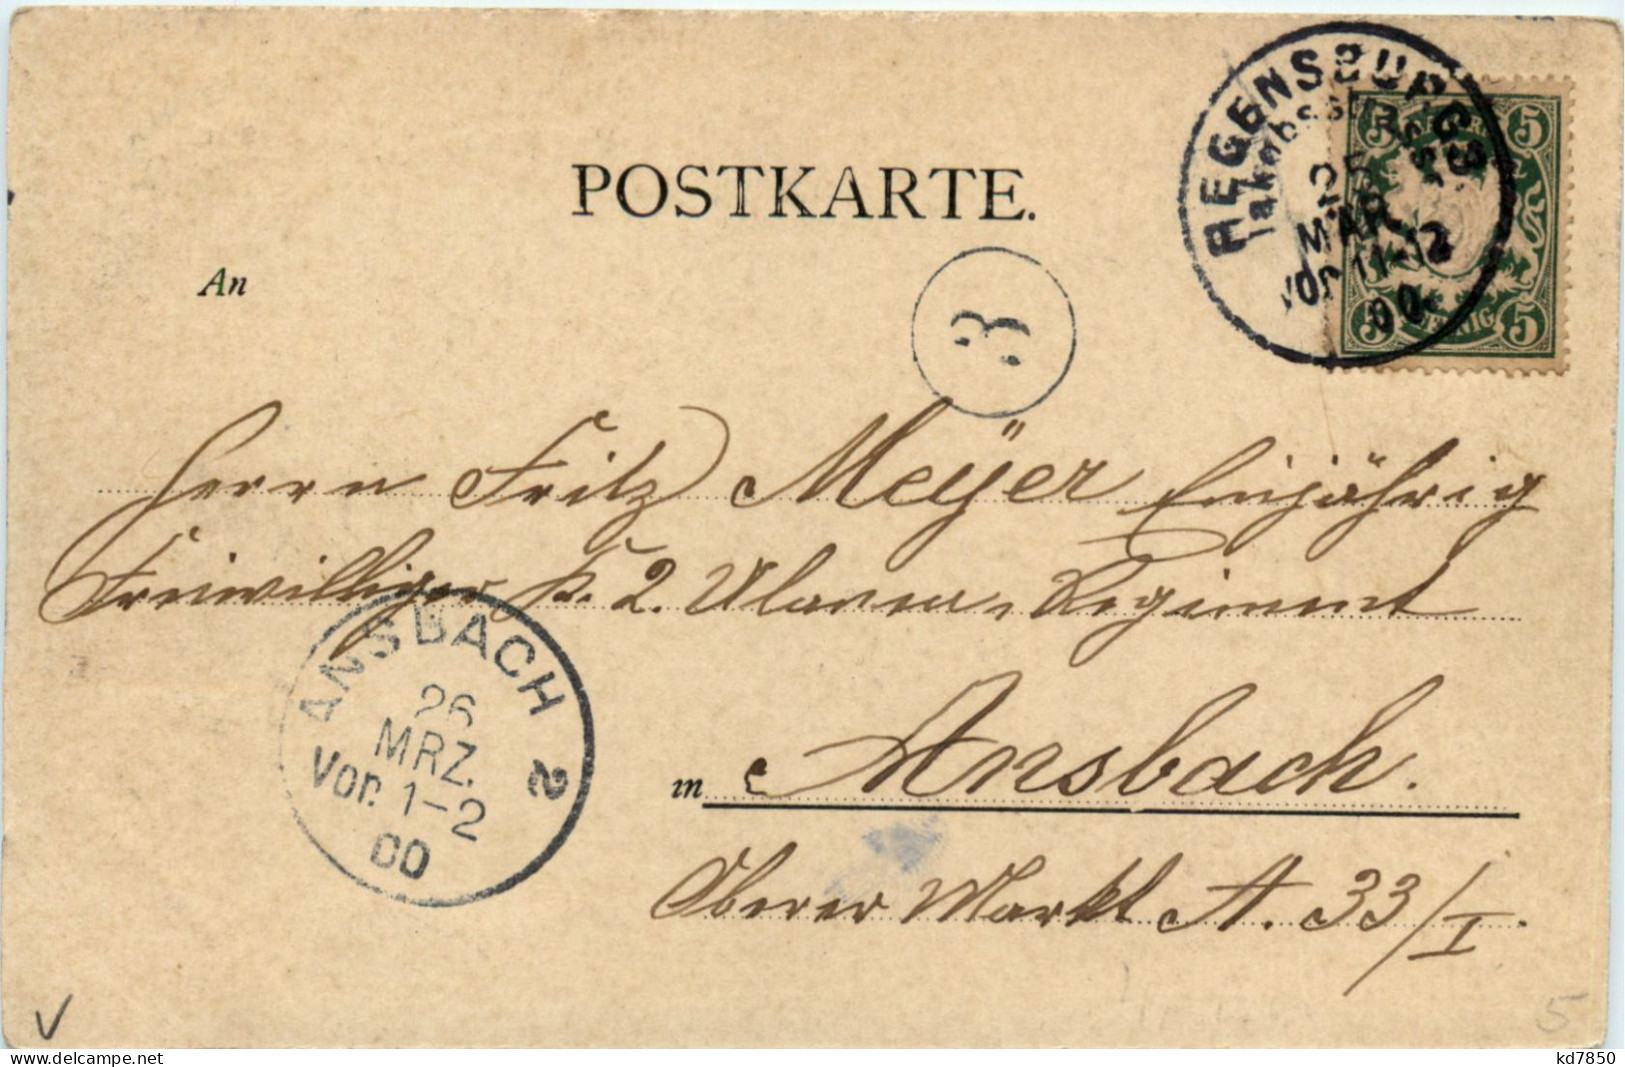 POSTKARTE.
REGENSBURG 3
Jakobsstrasse
25
MAR
Vor. 11-12
00
5 5
5 PFENNIG 5
An
3
Herrn Fritz Meÿer Einjährig
Freiwilliger k. 2. Ulanen, Regiment
ANSBACH 2
26
MRZ.
Vor. 1-2
00
in Ansbach.
Oberer Markt A. 33/I.
5
kd7850